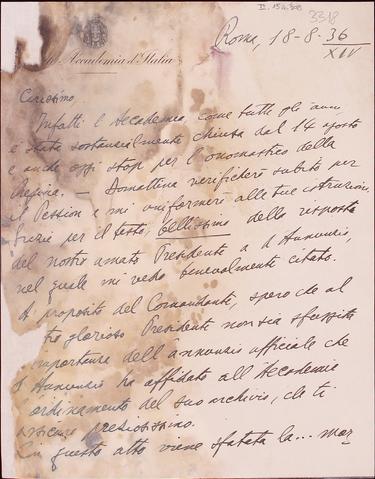 3318
Roma, 18-8-36
XIV
Accademia d'Italia
Carissimo,
Infatti l'Accademia, come tutti gli anni,
è stata sostanzialmente chiusa dal 14 agosto
e anche oggi stop per l'onomastico della
Regina. — Domattina verificherò subito per
il Pession e mi uniformerò alle tue istruzioni.
Grazie per il testo, bellissimo della risposta
del nostro amato Presidente a d'Annunzio,
nel quale mi vedo benevolmente citato.
A proposito del Comandante, spero che al
tro glorioso Presidente non sia sfuggita
importanza dell'annunzio ufficiale che
d'Annunzio ha affidato all'Accademia
l'ordinamento del suo archivio, che ti
assicuro preziosissimo.
In questo atto viene sfatata la... mor